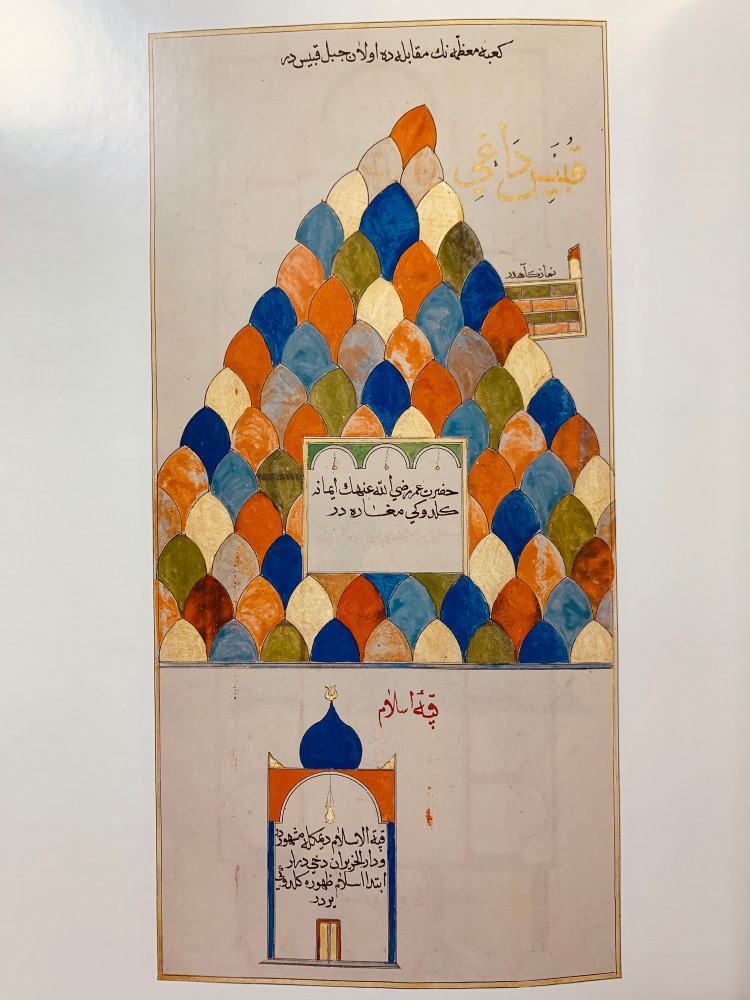 كعبهٔ معظّمه نك مقابله ده اولان جبل قبيس در
قُبَيْسِ دَاغِي
نمازكاهدر
حضرت عمر رضي الله عنهك ايمانه
كلدوكي مغاره در
قبّهٔ اسلام
قبّة الاسلام ديمكله مشهوردر
ودار الخزيران دخي ديرلر
ابتدا اسلام ظهوره كلدوكي
يردر